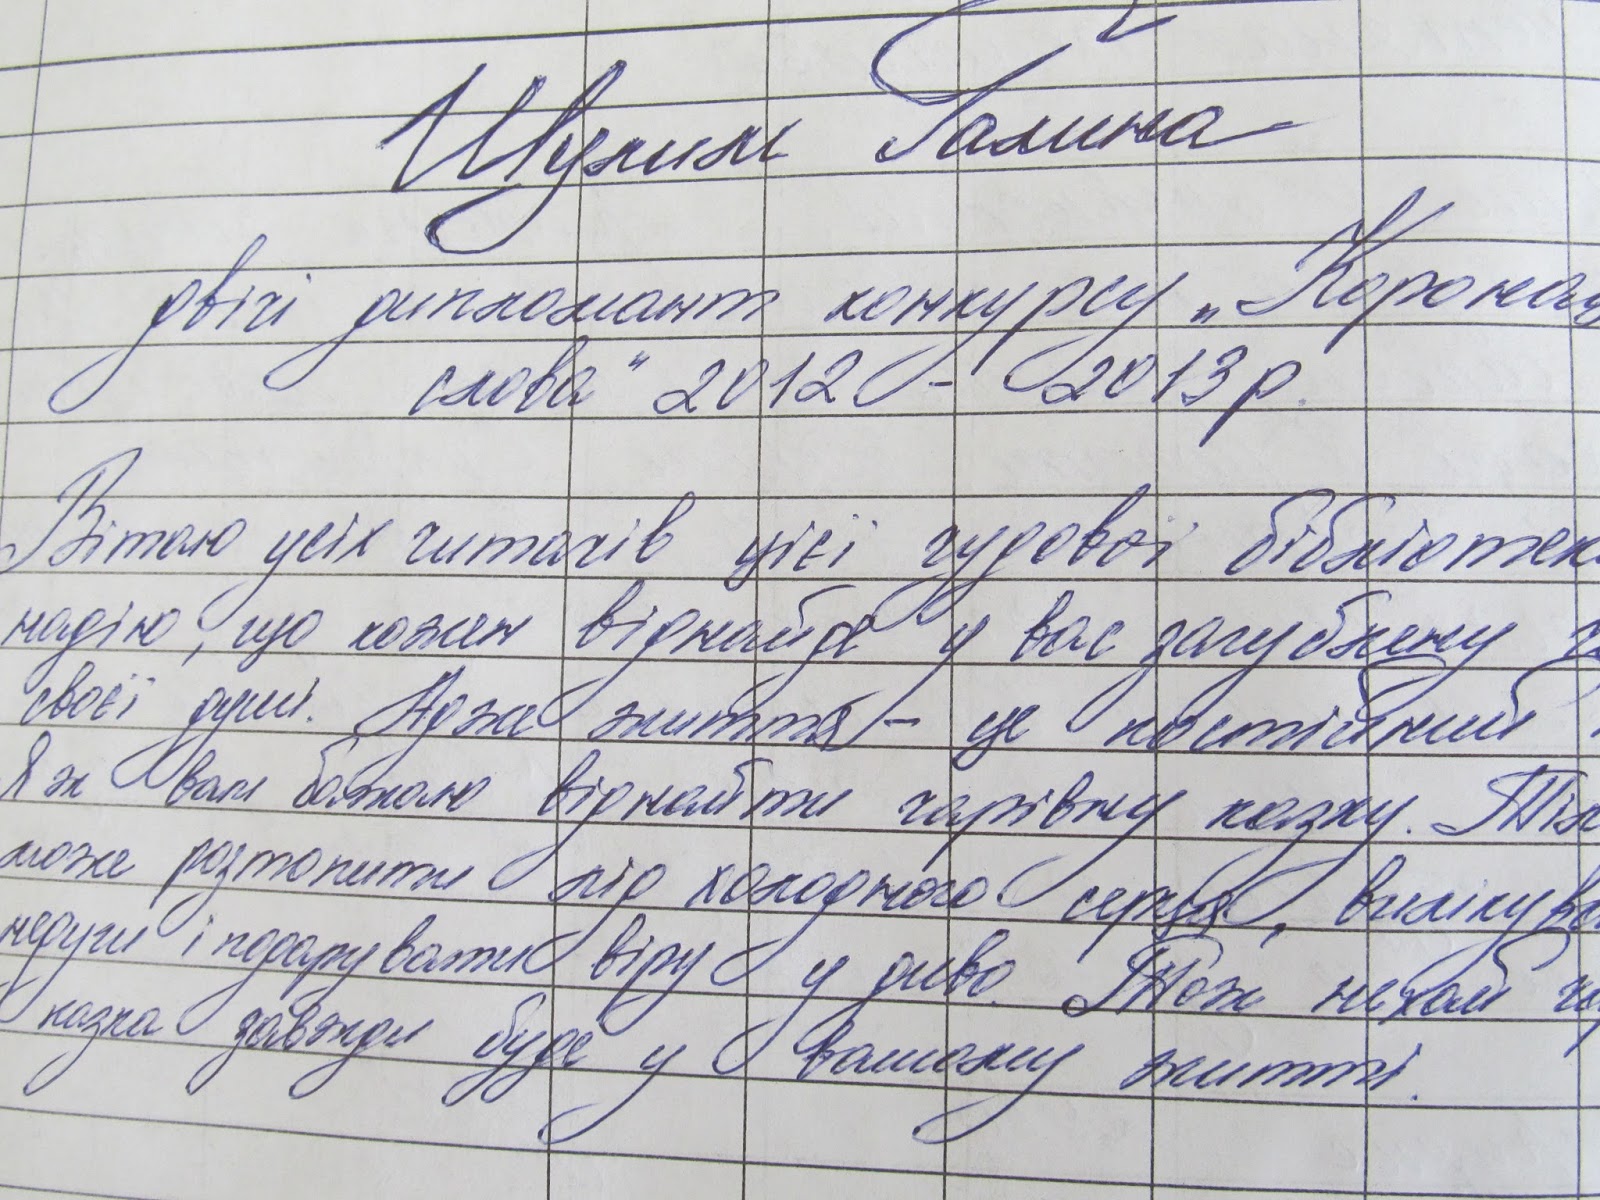 Галина
двічі дипломант конкурсу „Коронація
слова" 2012 - 2013 р.
Вітаю усіх читачів цієї чудової бібліотек
надію, що кожен віднайде у вас загублену
своєї душі. Адже життя - це постійний
Я ж вам бажаю віднайти чарівну казку.
може розтопити лід холодного серця, вилікува
недуги і подарувати віру у диво. Тож нехай
казка завжди буде у вашому житті.